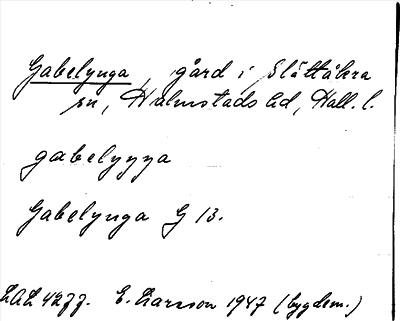 Gabelynga, gård i Slättåkra
sn, Halmstads hd, Hall. l.
gabelyŋŋa
Gabelynga G 13.
LAL 4277. E. Larsson 1947 (bygdem.)